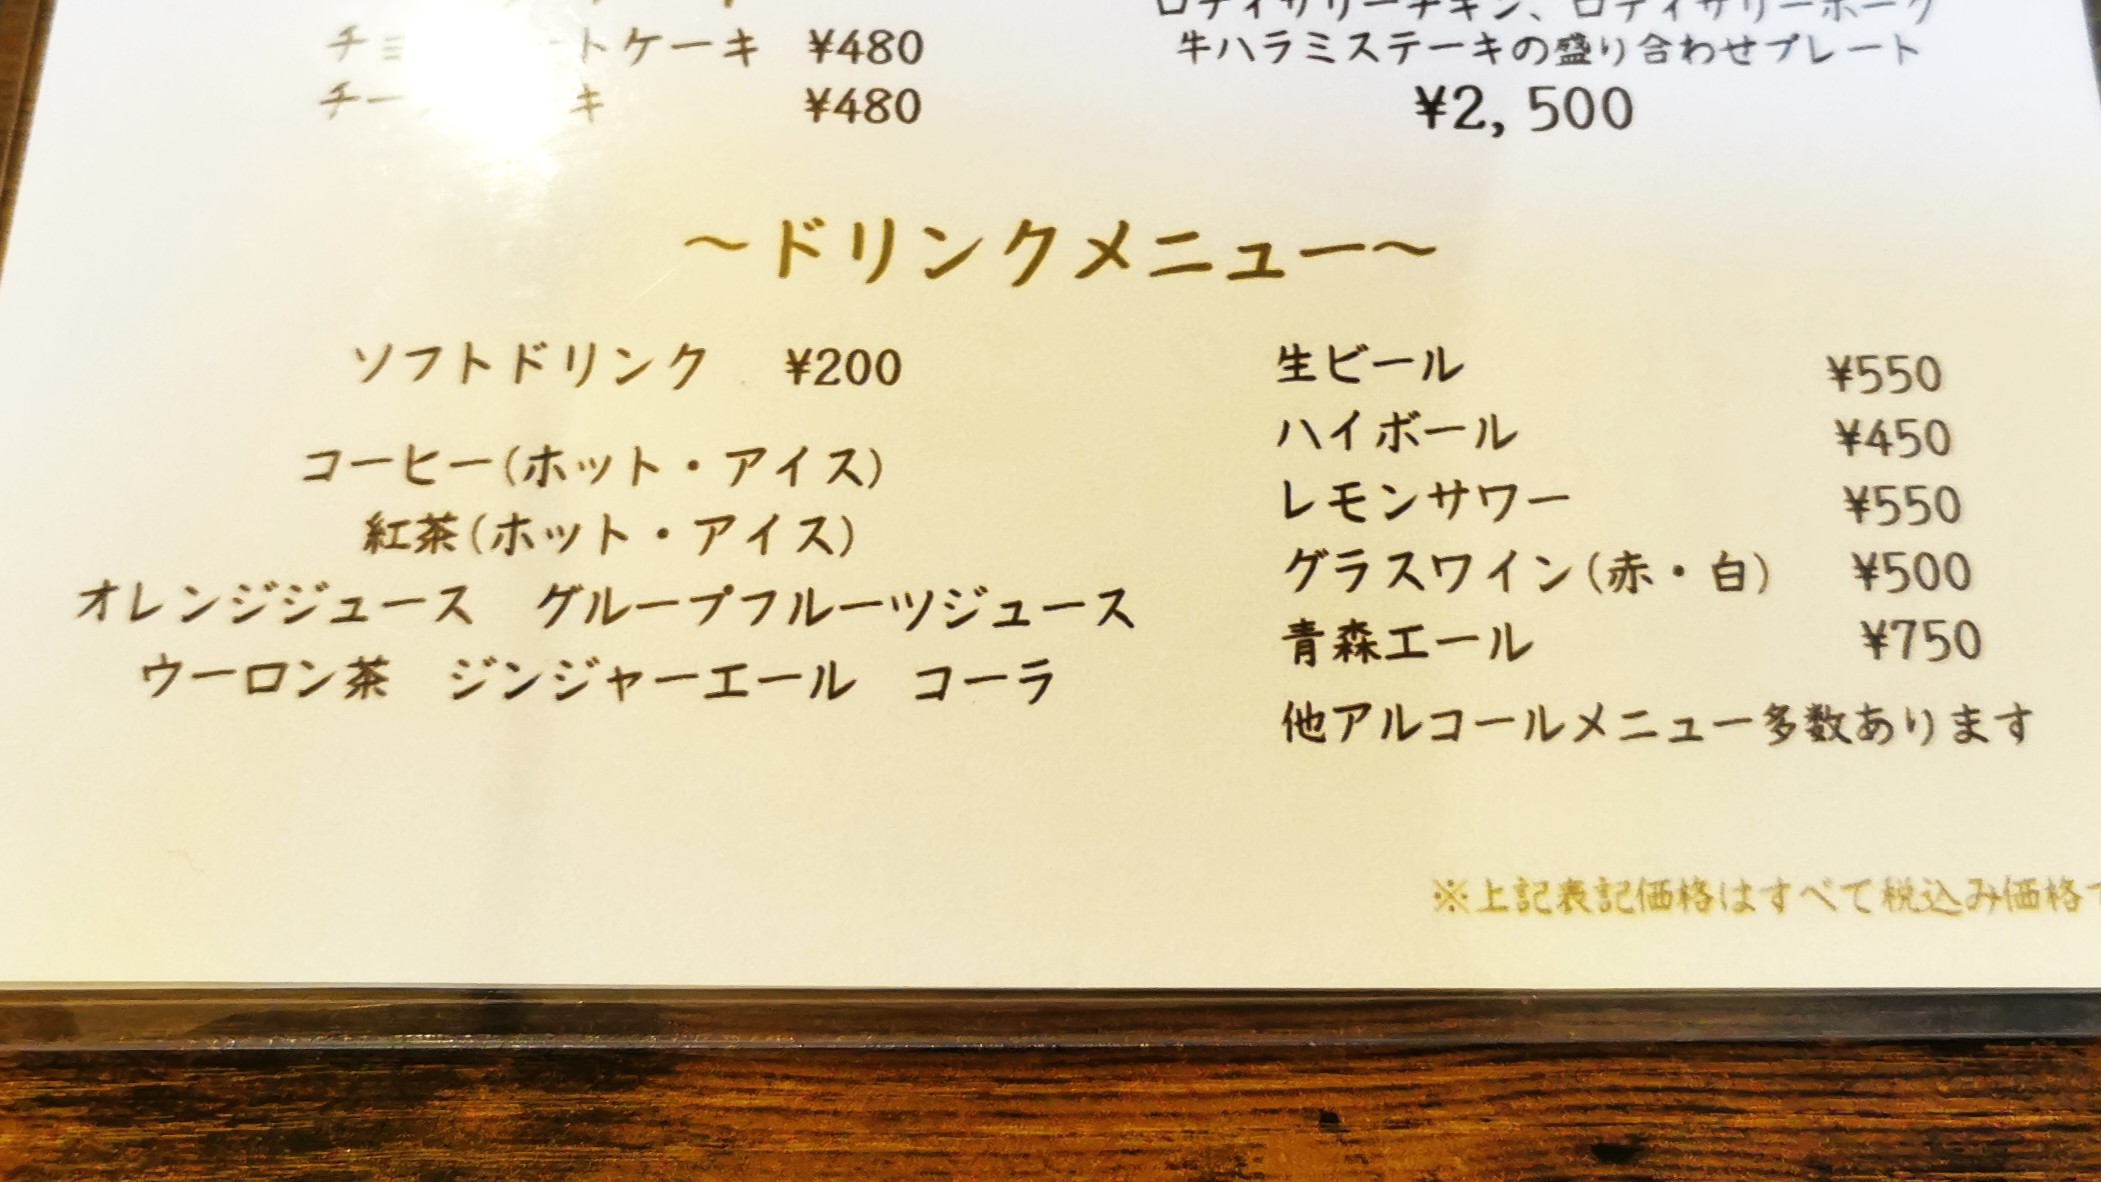 トケーキ ¥480
キ ¥480
ロティサリーチキン、ロティサリーポーク
牛ハラミステーキの盛り合わせプレート
¥2,500
~ドリンクメニュー~
ソフトドリンク ¥200
コーヒー(ホット・アイス)
紅茶(ホット・アイス)
オレンジジュース グループフルーツジュース
ウーロン茶 ジンジャーエール コーラ
生ビール ¥550
ハイボール ¥450
レモンサワー ¥550
グラスワイン(赤・白) ¥500
青森エール ¥750
他アルコールメニュー多数あります
※上記表記価格はすべて税込み価格